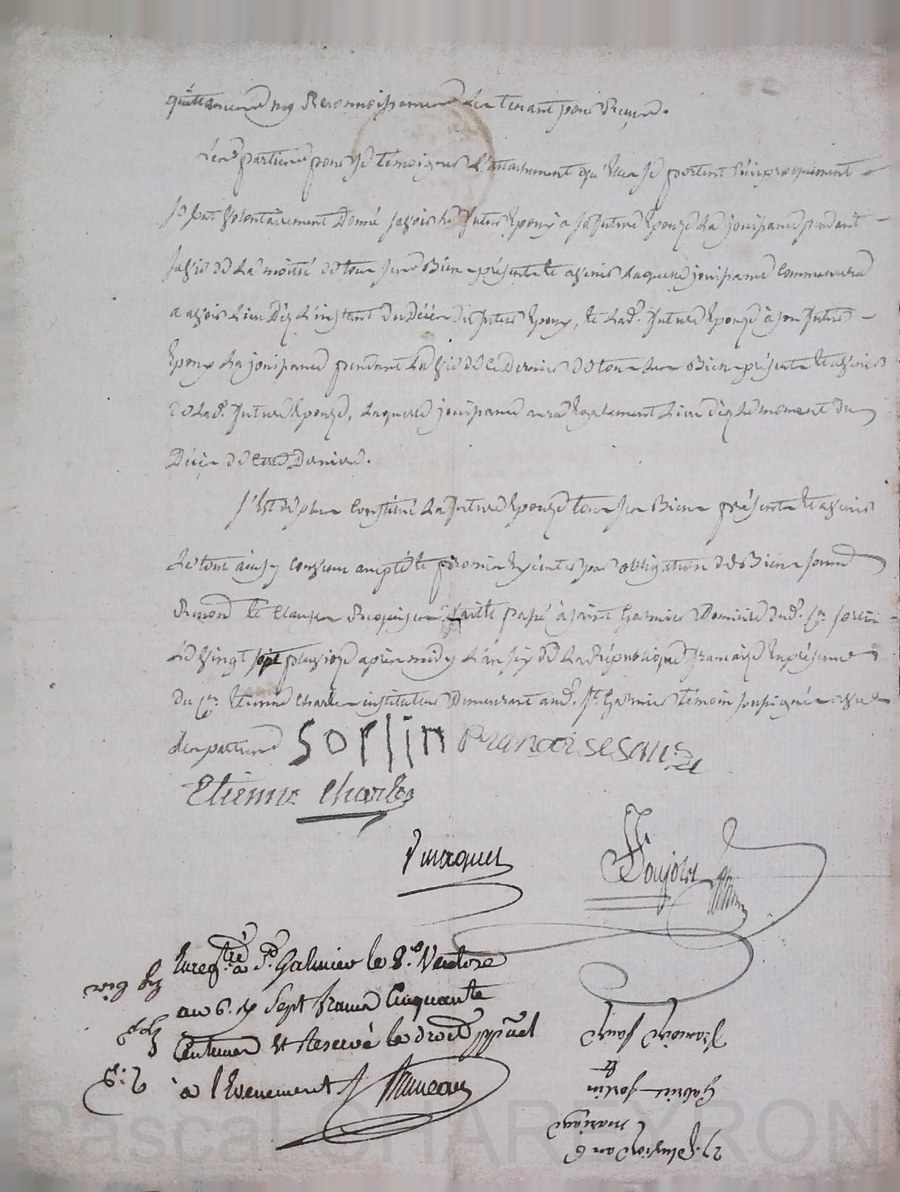 quittance ny Reconnoissance les tenant pour Reçus.
Les parties pour se témoigner l'attachement qu'elles se portent Réciproquement
se sont volontairement Donné savoir le futur Epoux a sa future Epouze La jouissance pendant
sa vie de La moitié de tous ses Biens présents et avenir Laquelle jouissance Commencera
a avoir Lieu Dèz L'instant du Décès du futur Epoux, et Lad. future Epouze à son futur
Epoux La jouissance pendant La vie de ce dernier de tous ses Biens présents et avenir
de Lad. future Epouze, Laquelle jouissance aura Egalement Lieu dèz Le moment du
Décès de cette Derniere.
s'Est de plus Constitué La future Epouze tous ses Biens présents et avenir
Le tout ainsy Convenu accepté et promis Exécuter par obligation de Biens soumis
Renoncé et Clauses Requises. fait et passé à saint Galmier Domicile dud. Cen sorlin
Le vingt sept pluviose après midy L'an six de La République française En présence
du Cen Etienne Charles instituteur Demeurant aud. St Galmier témoin soussigné
les parties
Sorlin francoise sauze
Etienne Charles
Enregtré à St Galmier le 8 Ventose
an 6. Rx Sept francs Cinquante
Centimes et Reservé le droit
à l'Evenement
27 pluviose an 6
mariage
Gabriel sorlin
et
francoise sauze